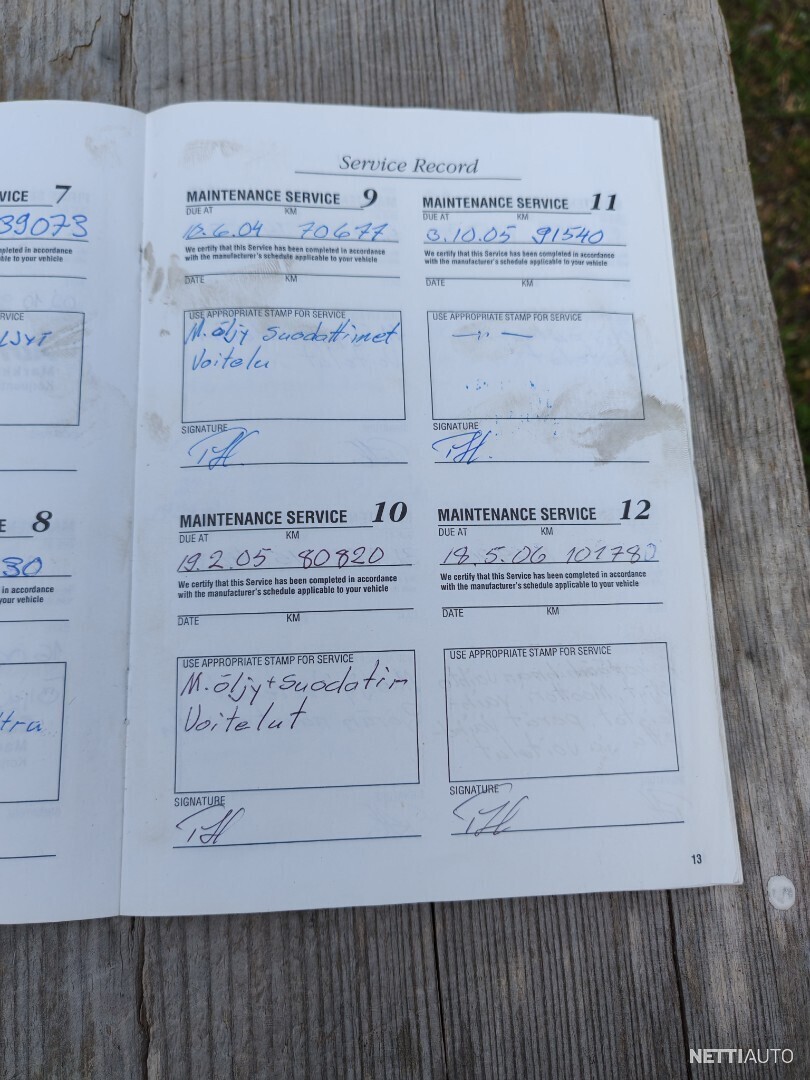 Service Record
VICE 7
39073
pleted in accordance
ble to your vehicle
RVICE
E 8
30
d in accordance
your vehicle
tra
MAINTENANCE SERVICE 9
DUE AT KM
6.04 70677
We certify that this Service has been completed in accordance
with the manufacturer's schedule applicable to your vehicle
DATE KM
USE APPROPRIATE STAMP FOR SERVICE
M.öljy Suodattimet
Voitelu
SIGNATURE
MAINTENANCE SERVICE 10
DUE AT KM
19.2.05 80820
We certify that this Service has been completed in accordance
with the manufacturer's schedule applicable to your vehicle
DATE KM
USE APPROPRIATE STAMP FOR SERVICE
M.öljy + Suodatin
Voitelut
SIGNATURE
MAINTENANCE SERVICE 11
DUE AT KM
3.10.05 91540
We certify that this Service has been completed in accordance
with the manufacturer's schedule applicable to your vehicle
DATE KM
USE APPROPRIATE STAMP FOR SERVICE
—〃—
SIGNATURE
MAINTENANCE SERVICE 12
DUE AT KM
18.5.06 101780
We certify that this Service has been completed in accordance
with the manufacturer's schedule applicable to your vehicle
DATE KM
USE APPROPRIATE STAMP FOR SERVICE
SIGNATURE
13
NETTIAUTO